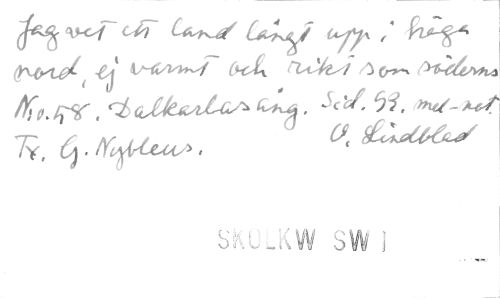 Jag vet ett land långt upp i höga
nord, ej varmt och rikt som söderns
No. 58. Dalkarlasång. Sid. 92. mel-not.
Tx. G. Nybleus. O. Lindblad
SKOLKW SW 1